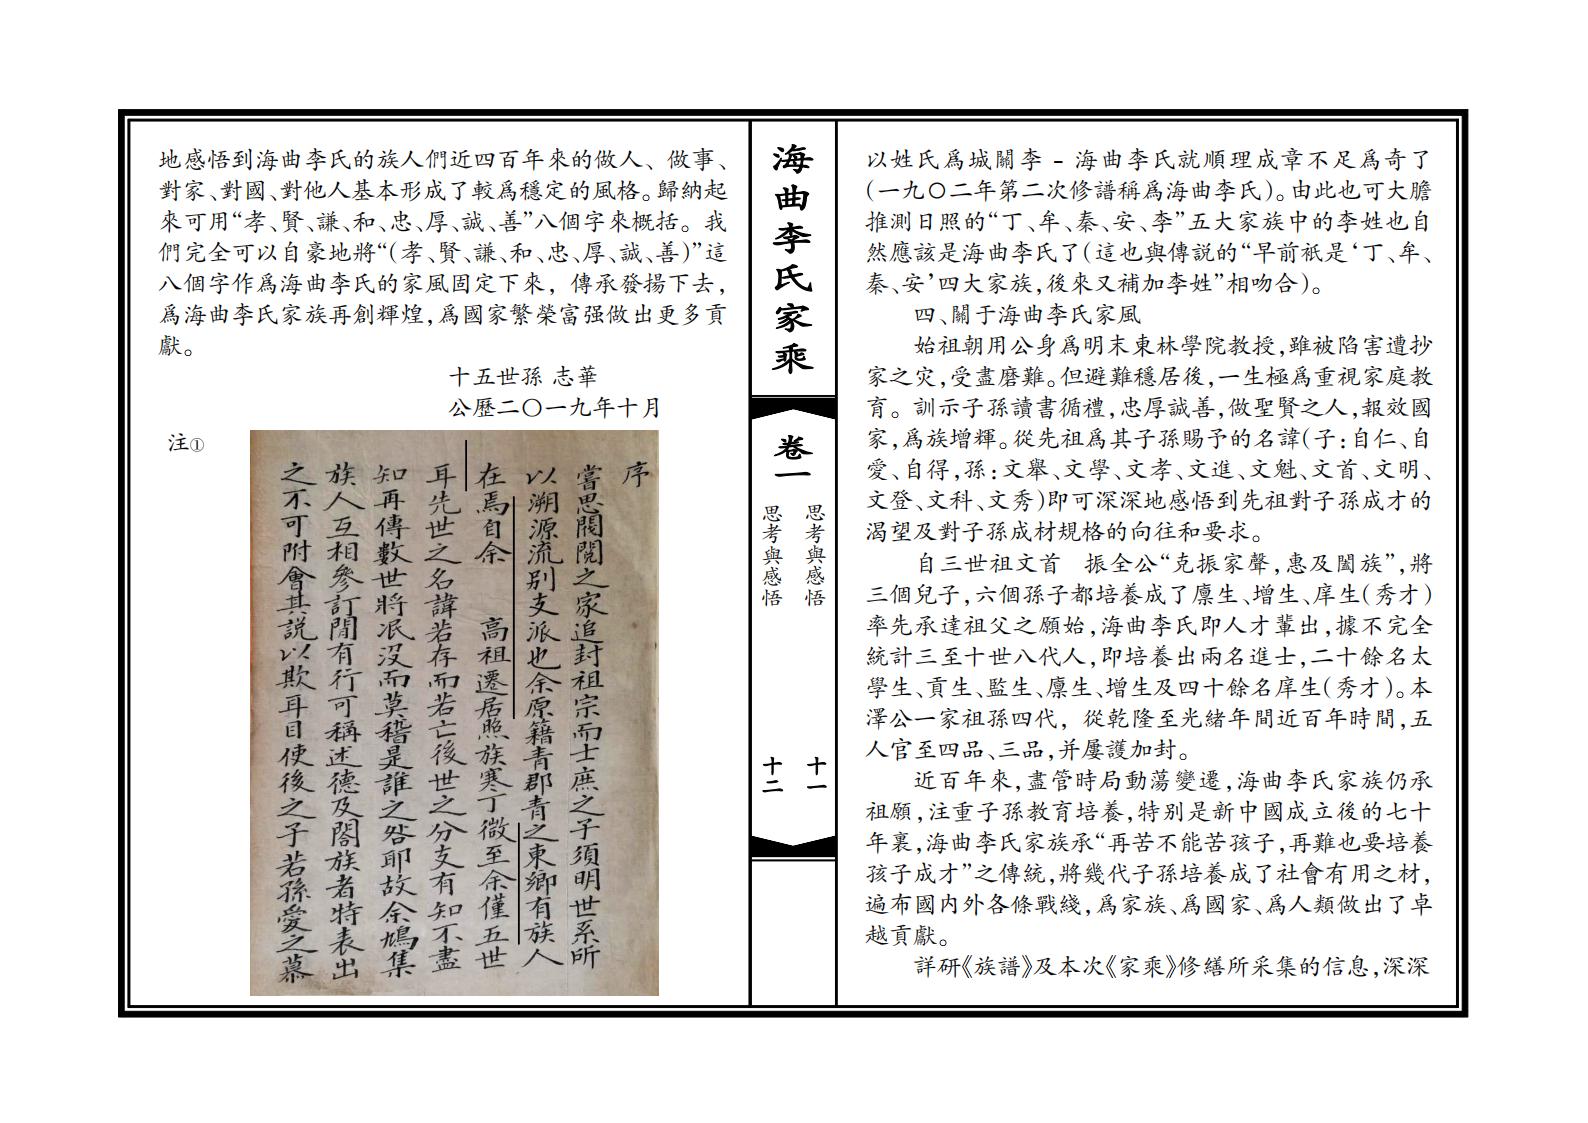 以姓氏爲城關李－海曲李氏就順理成章不足爲奇了
(一九〇二年第二次修譜稱爲海曲李氏)。由此也可大膽
推測日照的“丁、牟、秦、安、李”五大家族中的李姓也自
然應該是海曲李氏了(這也與傳説的“早前衹是‘丁、牟、
秦、安’四大家族,後來又補加李姓”相吻合)。
四、關于海曲李氏家風
始祖朝用公身爲明末東林學院教授,雖被陷害遭抄
家之灾,受盡磨難。但避難穩居後,一生極爲重視家庭教
育。訓示子孫讀書循禮,忠厚誠善,做聖賢之人,報效國
家,爲族增輝。從先祖爲其子孫賜予的名諱(子:自仁、自
愛、自得,孫:文舉、文學、文孝、文進、文魁、文首、文明、
文登、文科、文秀)即可深深地感悟到先祖對子孫成才的
渴望及對子孫成材規格的向往和要求。
自三世祖文首　振全公“克振家聲,惠及闔族”,將
三個兒子,六個孫子都培養成了廪生、增生、庠生(秀才)
率先承達祖父之願始,海曲李氏即人才輩出,據不完全
統計三至十世八代人,即培養出兩名進士,二十餘名太
學生、貢生、監生、廪生、增生及四十餘名庠生(秀才)。本
澤公一家祖孫四代，從乾隆至光緒年間近百年時間,五
人官至四品、三品,并屢護加封。
近百年來,盡管時局動蕩變遷,海曲李氏家族仍承
祖願,注重子孫教育培養,特别是新中國成立後的七十
年裏,海曲李氏家族承“再苦不能苦孩子,再難也要培養
孩子成才”之傳統,將幾代子孫培養成了社會有用之材,
遍布國内外各條戰綫,爲家族、爲國家、爲人類做出了卓
越貢獻。
詳研《族譜》及本次《家乘》修繕所采集的信息,深深
海曲李氏家乘
卷一
思考與感悟
思考與感悟
十一
十二
地感悟到海曲李氏的族人們近四百年來的做人、做事、
對家、對國、對他人基本形成了較爲穩定的風格。歸納起
來可用“孝、賢、謙、和、忠、厚、誠、善”八個字來概括。我
們完全可以自豪地將“(孝、賢、謙、和、忠、厚、誠、善)”這
八個字作爲海曲李氏的家風固定下來，傳承發揚下去,
爲海曲李氏家族再創輝煌,爲國家繁榮富强做出更多貢
獻。
十五世孫 志華
公歷二〇一九年十月
注①
序
嘗思閥閱之家追封祖宗而士庶之子須明世系所
以溯源流别支派也余原籍青郡青之東鄉有族人
在焉自余　高祖遷居照族寒丁微至余僅五世
耳先世之名諱若存而若亡後世之分支有知不盡
知再傳數世將泯没而莫稽是誰之咎耶故余鳩集
族人互相參訂閒有行可稱述德及閤族者特表出
之不可附會其説以欺耳目使後之子若孫愛之慕